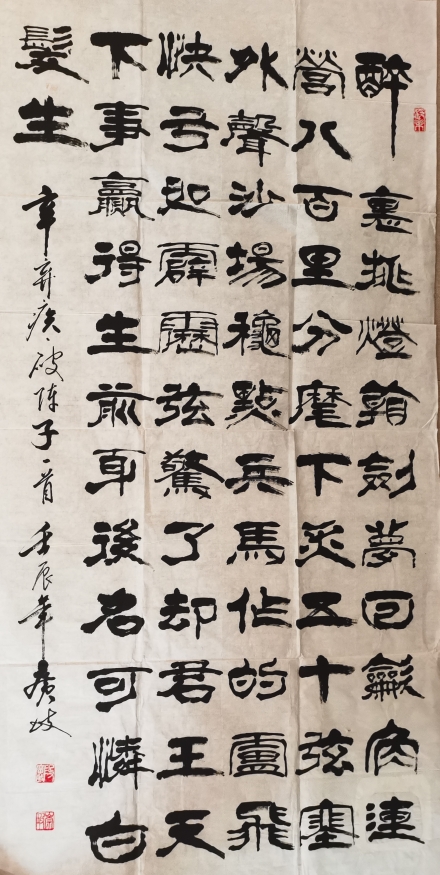 醉裏挑燈看劍夢回龡角連
營八百里分麾下炙五十弦塞
外聲沙場穐點兵馬作的盧飛
快弓如霹靂弦驚了却君王天
下事贏得生前身後名可憐白
髮生
辛弃疾破陣子一首壬辰年